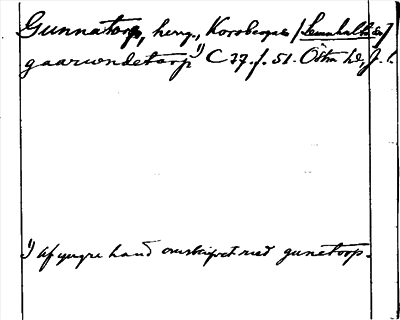 Gunnatorp, hemm., Korsberga / Lemnhults sn /
gaarwndetorp ¹) C 37. f. 51. Östra hd, J. l.
¹) af yngre hand överskrifvet med gunetoop.